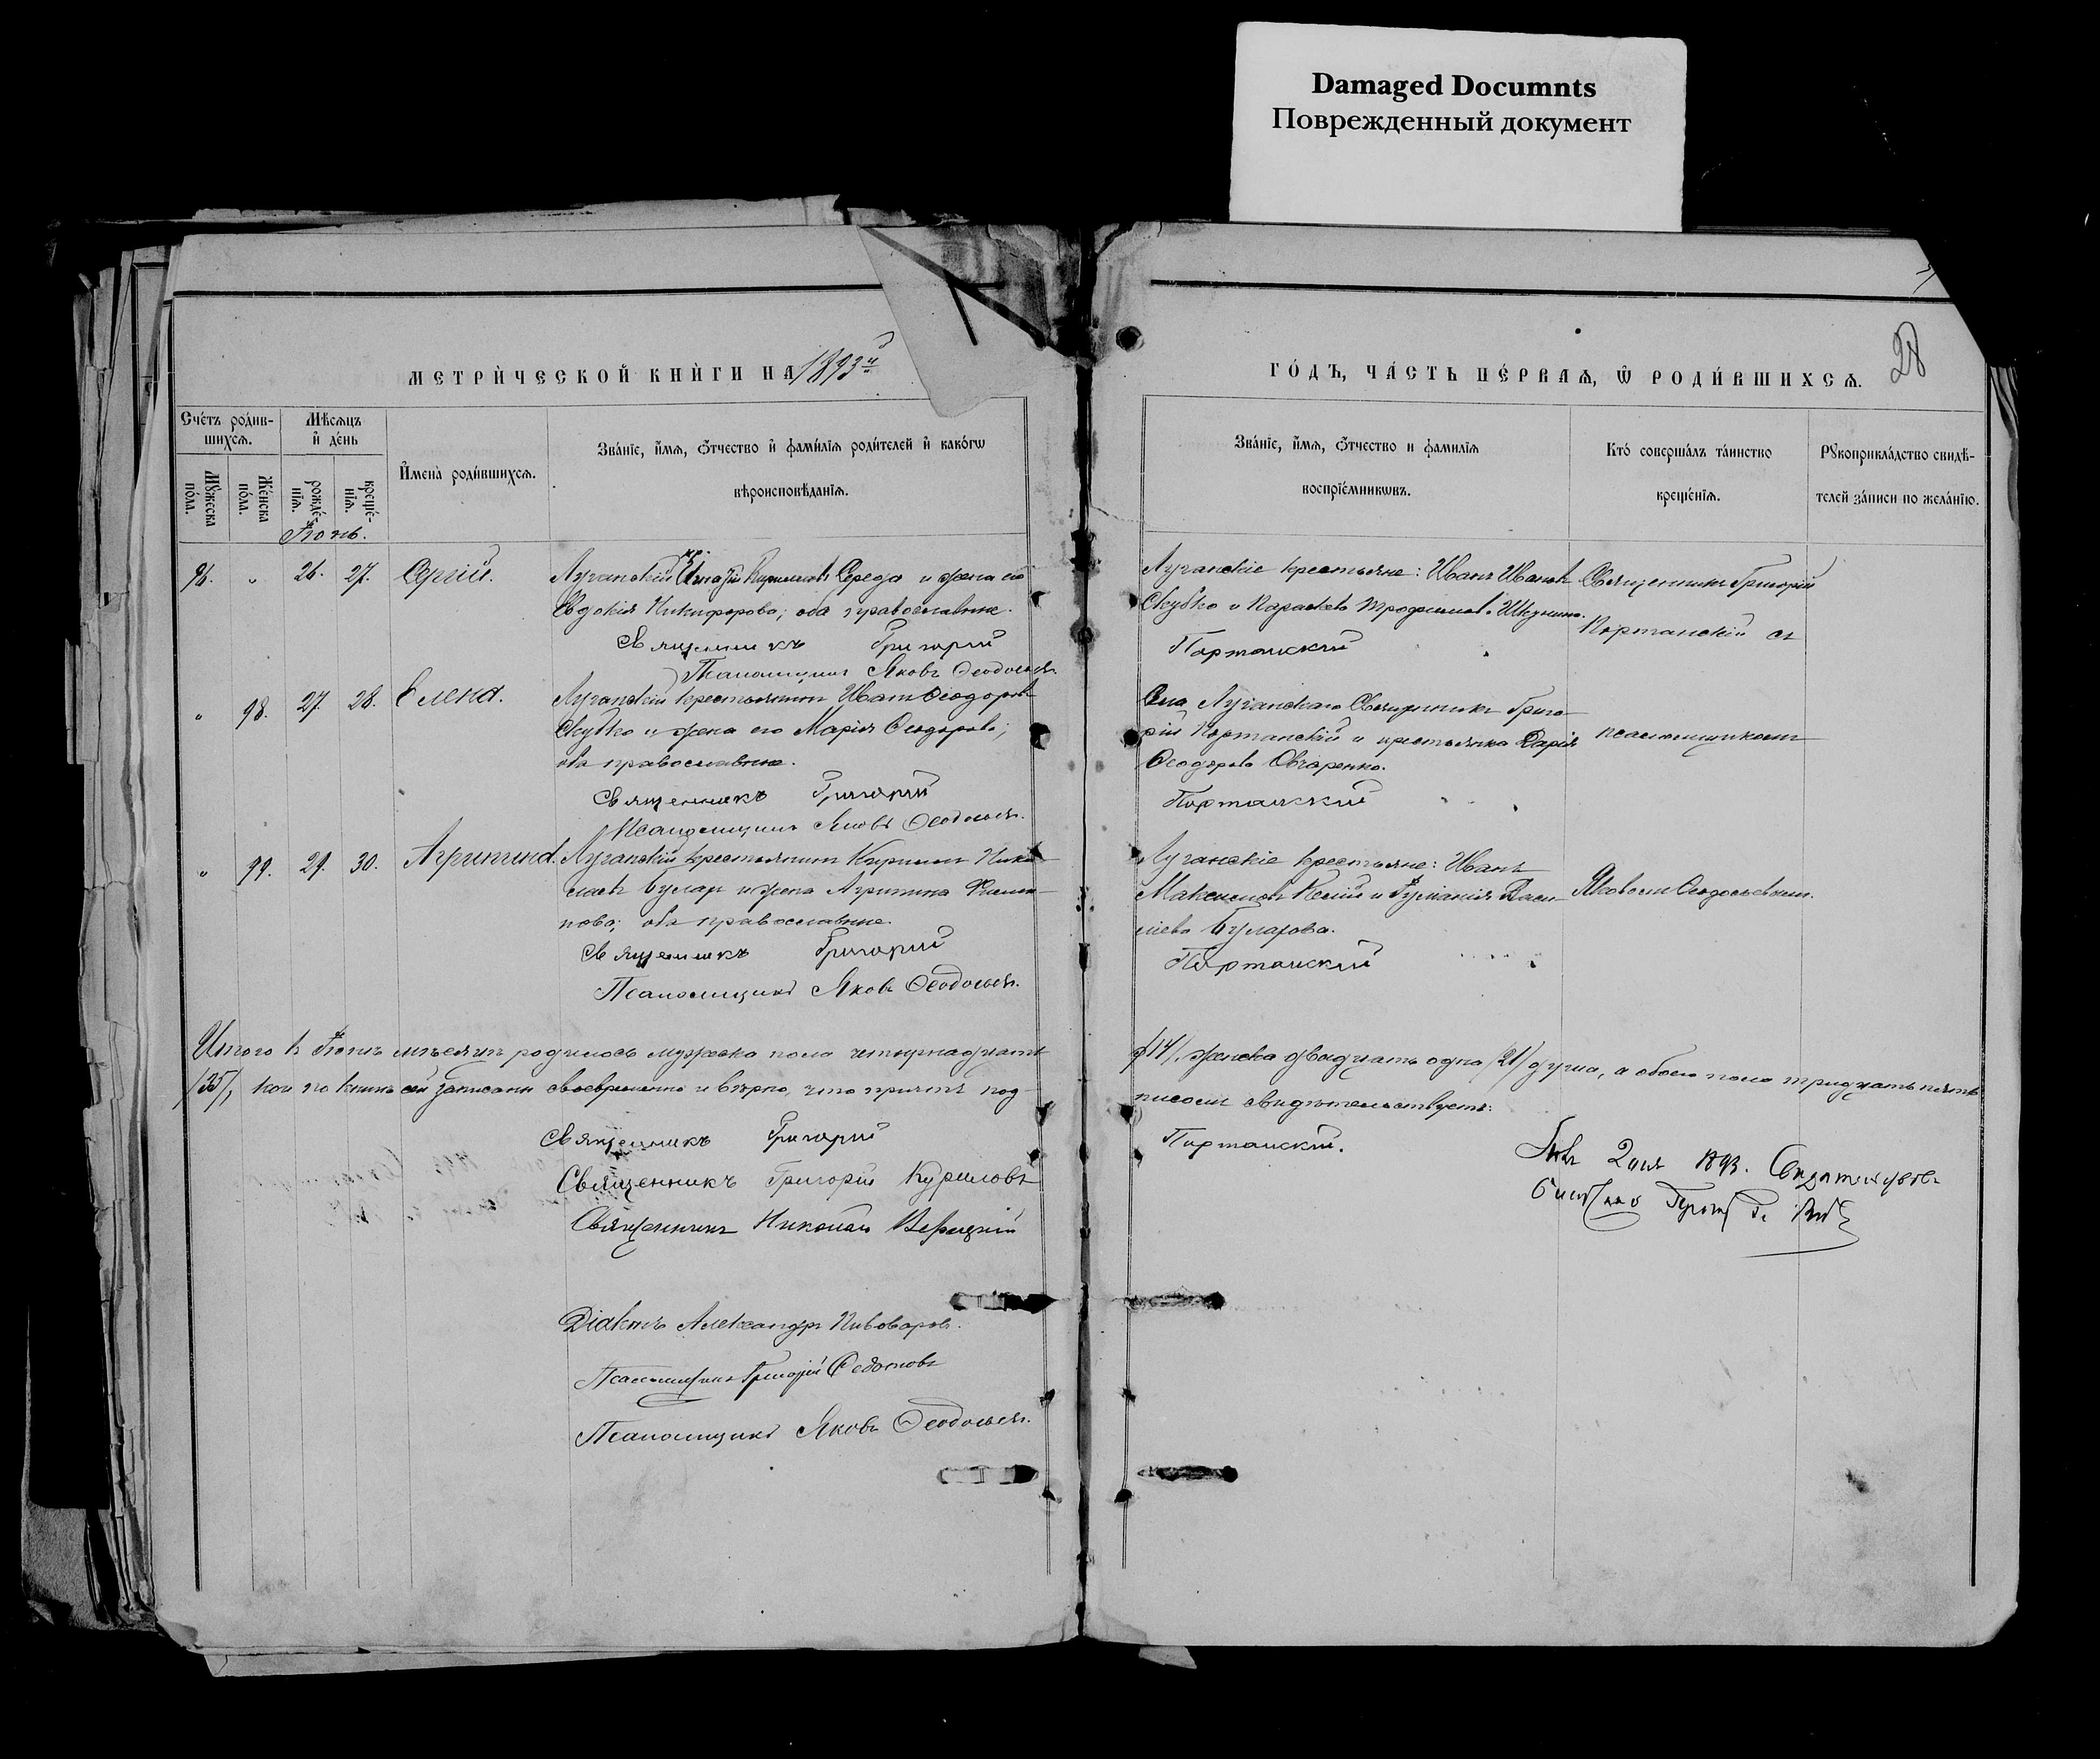 Damaged Documnts
Поврежденный документ
МЕТРИ́ЧЕСКОЙ КНИ́ГИ НА 1893й
ГО́ДЪ, ЧА́СТЬ ПЕ́РВАѦ, Ѡ҆ РОДИ́ВШИХСѦ.
28
Сче́тъ роди́вшихсѧ.
Мꙋ́жеска по́ла.
Же́нска по́ла.
Мѣ́сѧцъ и҆ де́нь
рожде́нїѧ.
креще́нїѧ.
И҆мена̀ роди́вшихсѧ.
Зва́нїе, и҆́мѧ, ѻ҆́тчество и҆ фами́лїѧ роди́телей и҆ како́гѡ
вѣроисповѣ́данїѧ.
Зва́нїе, и҆́мѧ, ѻ҆́тчество и фами́лїѧ
воспрїе́мникѡвъ.
Кто̀ соверша́лъ та́инство
креще́нїѧ.
Рꙋкоприкла́дство свидѣ́-
телей за́писи по жела́нїю.
Іюнь.
96. „ 26. 27. Сергій.
Луганскій кр. Игнатій Кирилловъ Середа и жена его
Евдокія Никифорова; оба православные.
Священникъ Григорій
Псаломщикъ Яковъ Ѳеодосьев.
Луганскіе крестьяне: Иванъ Ивановъ
Скубко и Параскева Трофимова
Портанскій
Священникъ Григорій
Портанскій съ
„ 98. 27. 28. Елена.
Луганскій крестьянинъ Иванъ Ѳеодоровъ
Скубко и жена его Марія Ѳеодорова;
оба православные.
Священникъ Григорій
Псаломщикъ Яковъ Ѳеодосьев.
Села Луганскаго Священникъ Григо-
рій Портанскій и крестьянка Дарія
Ѳеодорова Овчаренко.
Портанскій
псаломщикомъ
„ 99. 29. 30. Агрипина.
Луганскій крестьянинъ Кириллъ Нико-
лаевъ Гулар и жена Агрипина Филип-
пова; оба православные.
Священникъ Григорій
Псаломщикъ Яковъ Ѳеодосьев.
Луганскіе крестьяне: Иванъ
Максимовъ и Іуліанія Васи-
ліева
Портанскій
Яковомъ Ѳеодосьевымъ.
Итого въ Іюнѣ мѣсяцѣ родилось мужеска пола четырнадцать
/14/, женска двадцать одна /21/ душа, а обоего пола тридцать пять
/35/, кои по книгѣ сей записаны своевременно и вѣрно, что причтъ под-
писомъ свидѣтельствуетъ:
Священникъ Григорій
Портанскій.
Священникъ Григорій Куриловъ
Священникъ Николай Верецкій
1893. Свидѣтельствов.
Діаконъ Александръ Пивоваров.
Псаломщикъ Григорій Ѳедотовъ
Псаломщикъ Яковъ Ѳеодосьев.